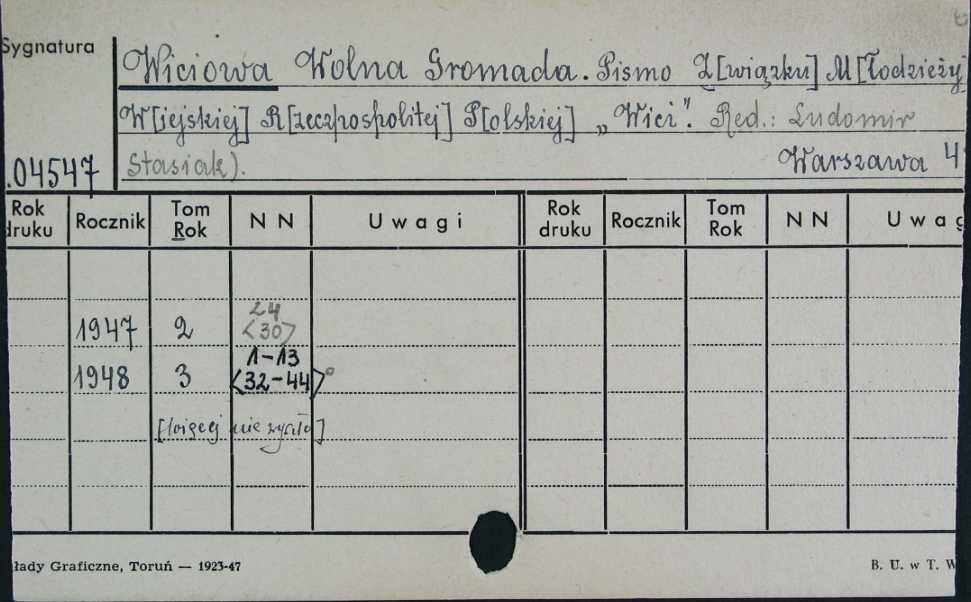 Sygnatura
Wiciowa Wolna Gromada. Pismo Z[wiązku] M[łodzieży]
W[iejskiej] R[zeczpospolitej] P[olskiej] „Wici". Red.: Ludomir
Stasiak). Warszawa 4
.04547
Rok druku Rocznik Tom Rok N N Uwagi Rok druku Rocznik Tom Rok N N Uwag
1947 2 24 <30>
1948 3 1-13 <32-44>°
[więcej nie wyszło]
łady Graficzne, Toruń — 1923-47 B. U. w T. W